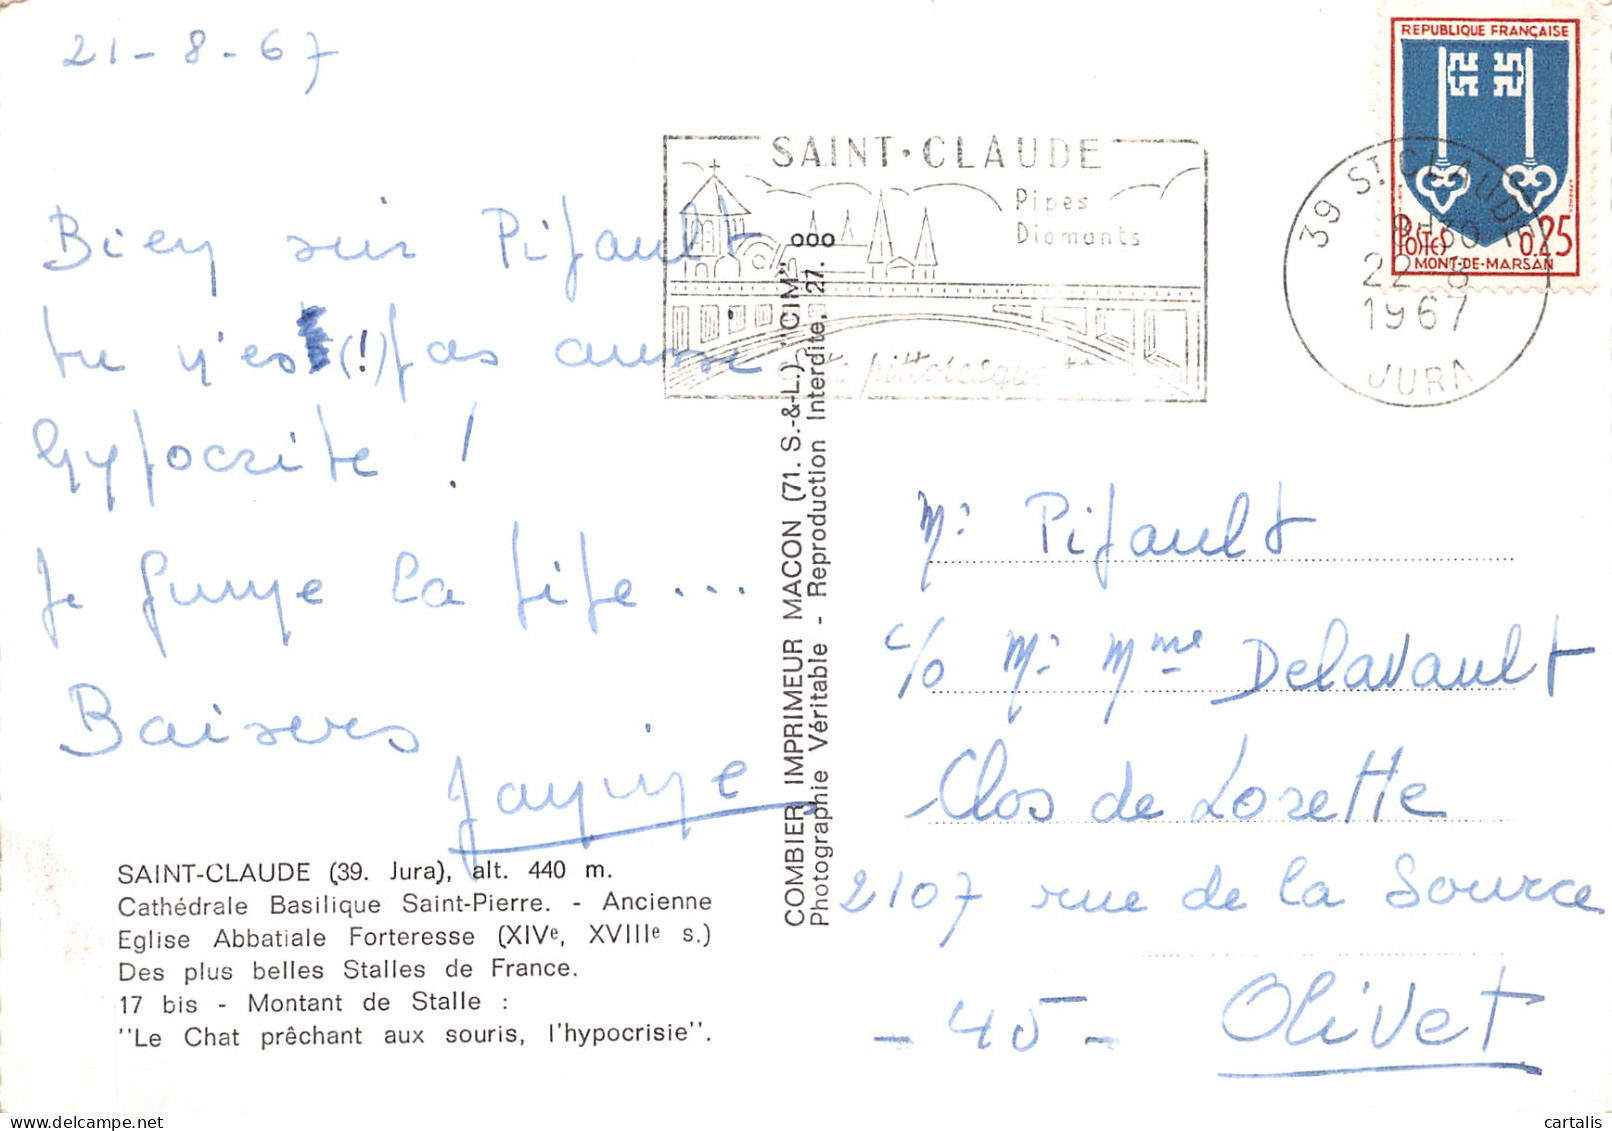 21-8-67
Bien sur Pifault
tu n'es (!) pas aussi
hypocrite !
Je fume la pipe ...
Baisers
Janine
SAINT-CLAUDE (39. Jura), alt. 440 m.
Cathédrale Basilique Saint-Pierre. - Ancienne
Eglise Abbatiale Forteresse (XIVe, XVIIIe s.)
Des plus belles Stalles de France.
17 bis - Montant de Stalle :
"Le Chat prêchant aux souris, l'hypocrisie".
COMBIER IMPRIMEUR MACON (71. S.-&-L.) "CIM"
Photographie Véritable - Reproduction Interdite, 27. 000
SAINT·CLAUDE
Pipes
Diamants
pittoresque
REPUBLIQUE FRANÇAISE
POSTES 0,25
MONT-DE-MARSAN
39 ST CLAUDE
22 - 8
1967
JURA
Mr Pifault
c/o Mr Mme Delavault
Clos de Lorette
2107 rue de la Source
- 45 - Olivet
cartalis
www.delcampe.net